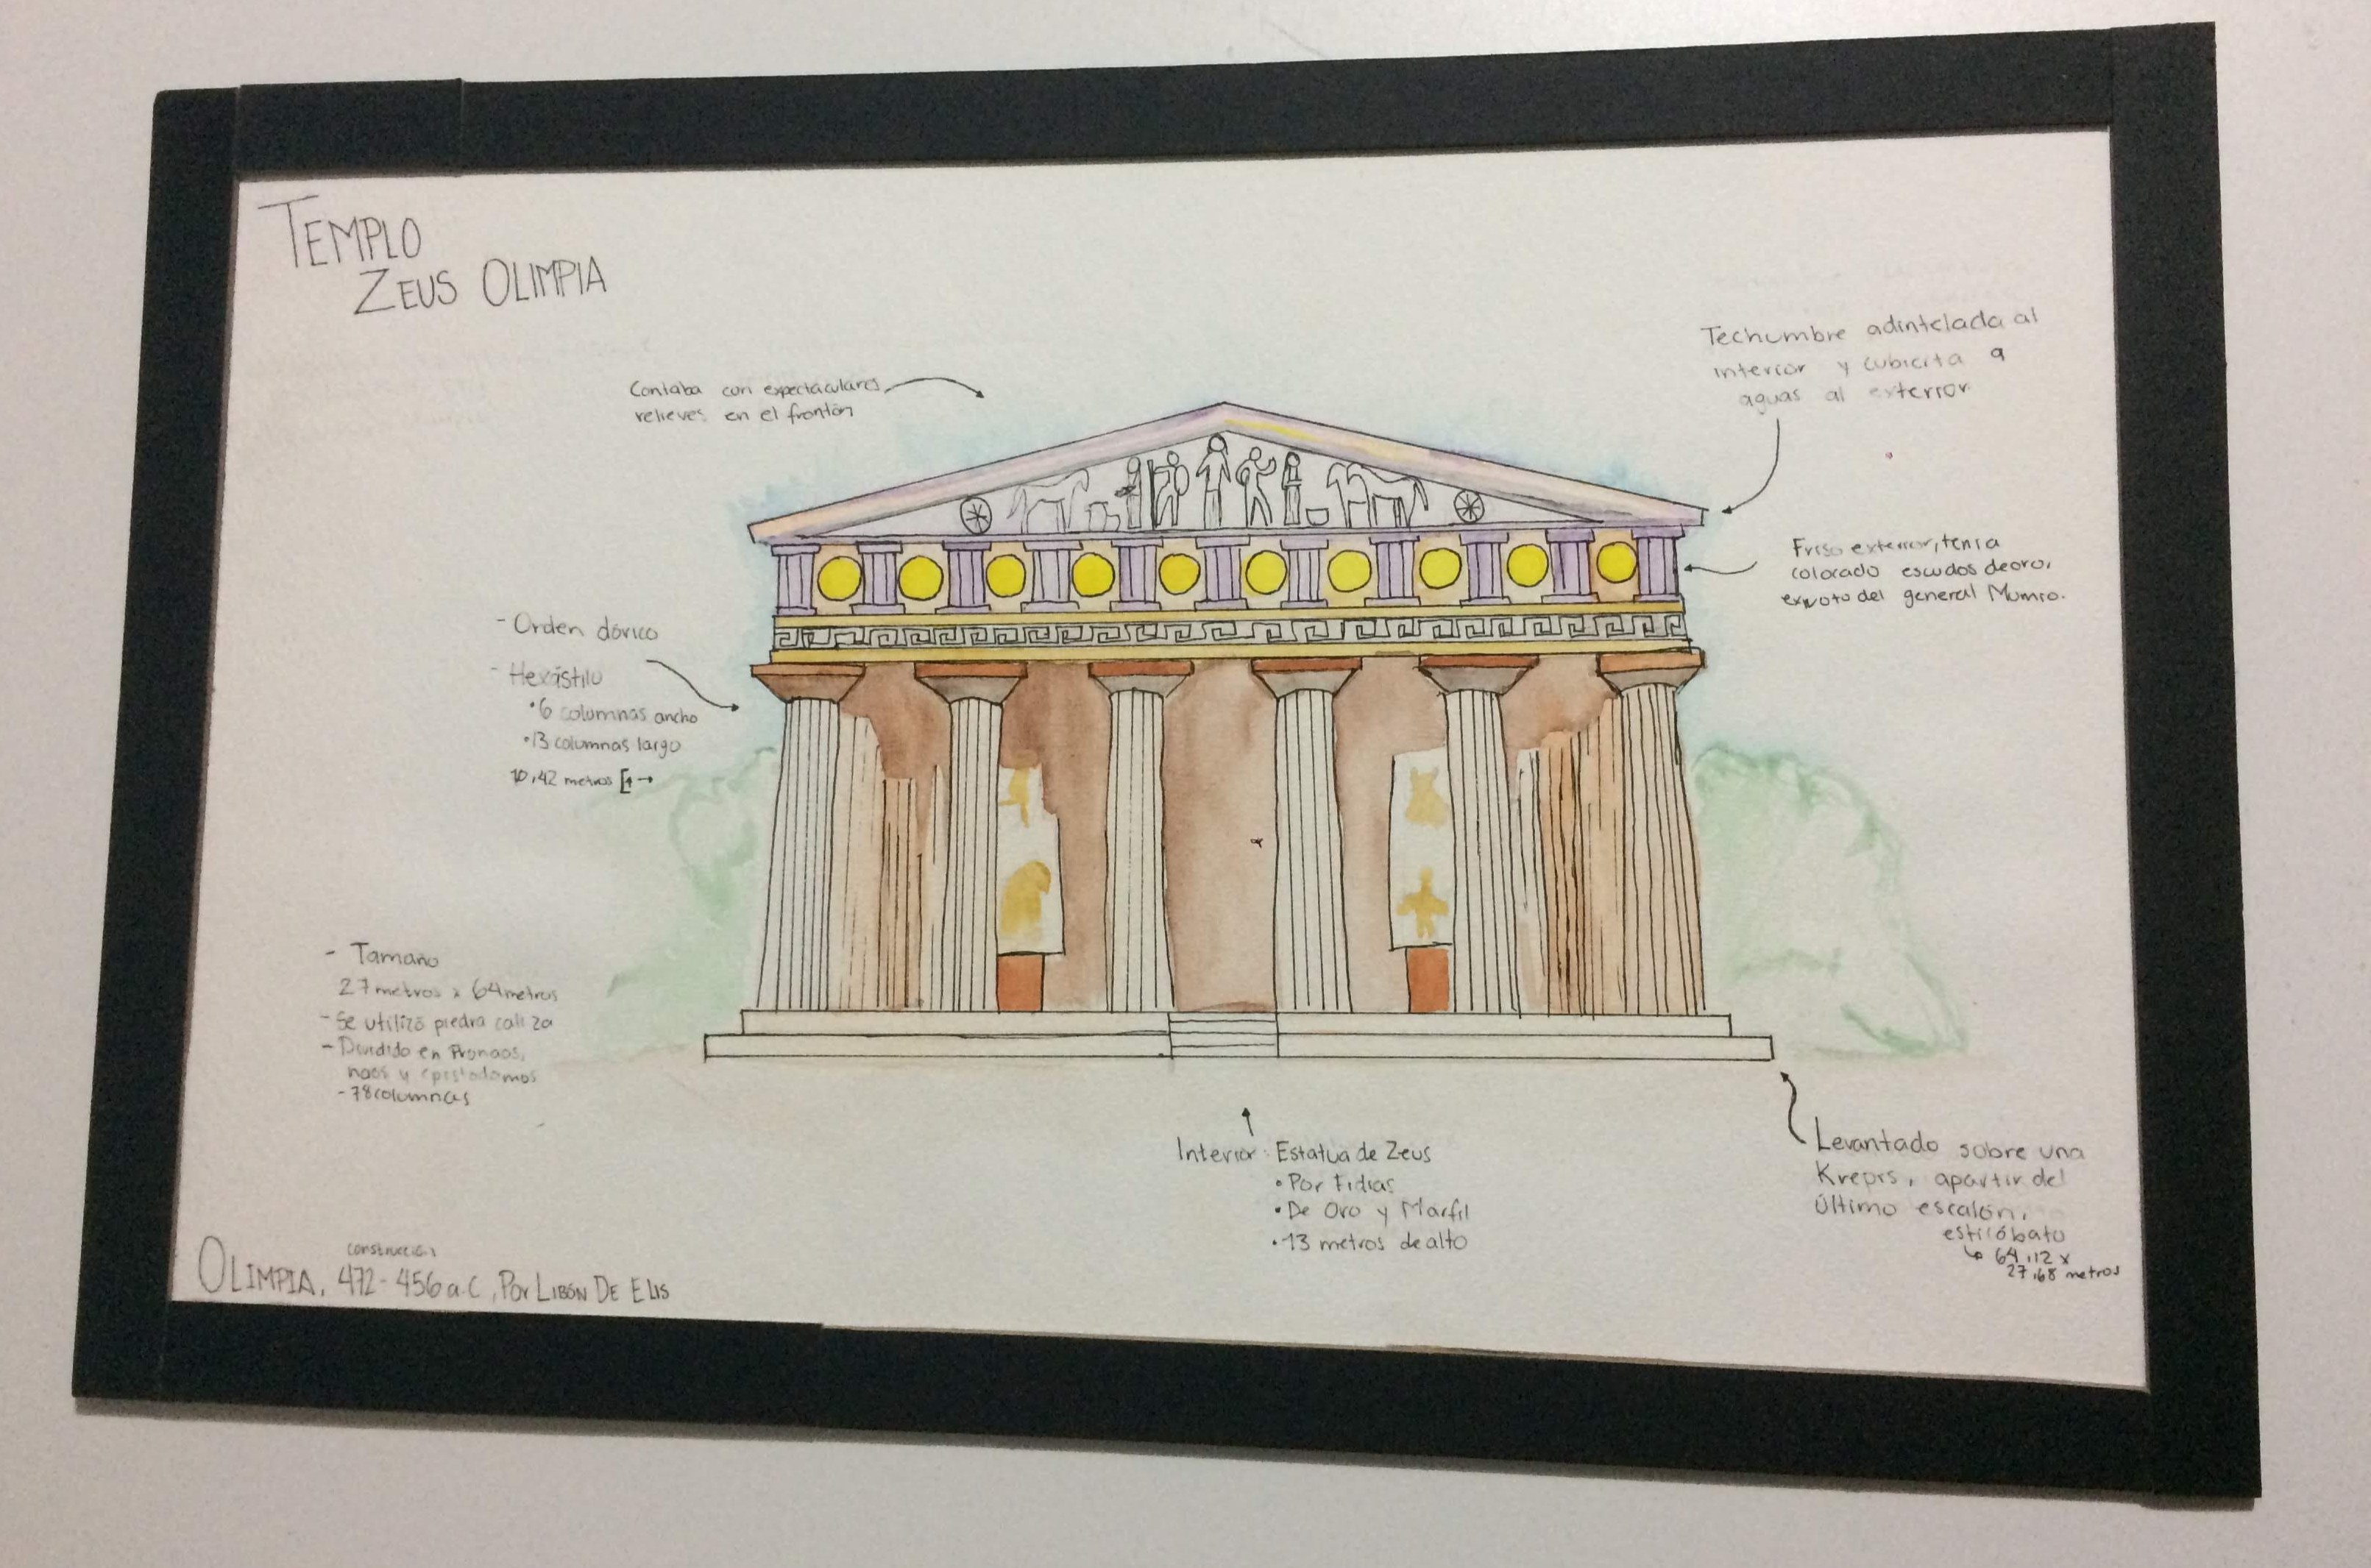 TEMPLO
ZEUS OLIMPIA
Contaba con expectaculares
relieves en el frontón
Techumbre adintelada al
interior y cubierta a
aguas al exterior
Friso exterior, tenia
colocado escudos de oro,
exvoto del general Mumio.
- Orden dórico
- Hexástilo
• 6 columnas ancho
• 13 columnas largo
10,42 metros
- Tamaño
27 metros x 64 metros
- Se utilizó piedra caliza
- Dividido en Pronaos,
naos y opistodomos
- 78 columnas
Interior: Estatua de Zeus
• Por Fidias
• De Oro y Marfil
• 13 metros de alto
Levantado sobre una
Krepis, apartir del
último escalón,
estilóbato
↳ 64,12 x
27,68 metros
construcción
OLIMPIA, 472-456 a.C, POR LIBÓN DE ELIS